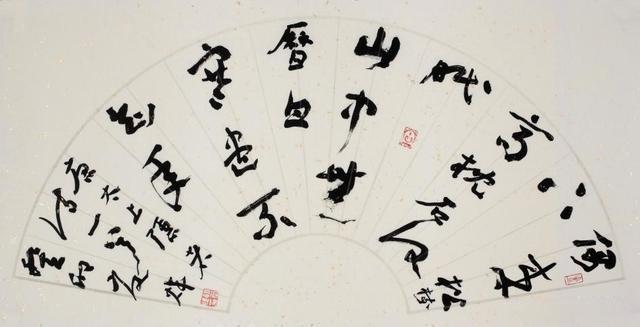 偶来松樹
下
高枕石頭
眠
山中無
曆日
寒盡不
知年
唐太上隱者